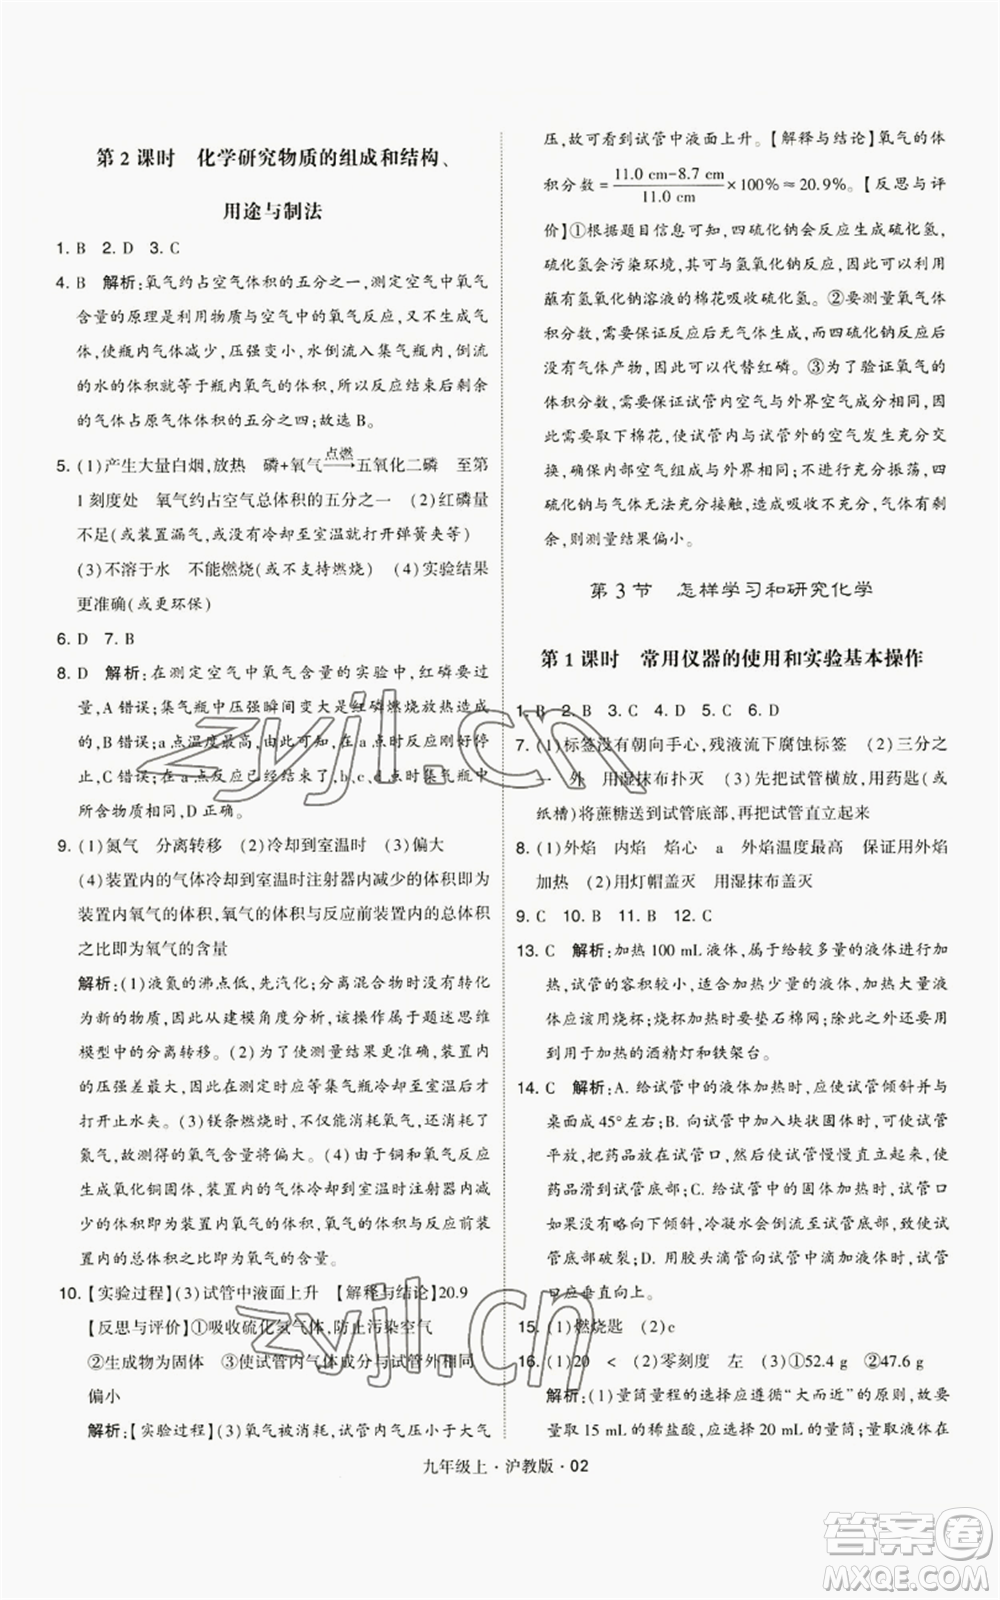 第 2 课时　化学研究物质的组成和结构、
用途与制法
1. B　2. D　3. C
4. B　解析:氧气约占空气体积的五分之一,测定空气中氧气
含量的原理是利用物质与空气中的氧气反应,又不生成气
体,使瓶内气体减少,压强变小,水倒流入集气瓶中,倒流
的水的体积就等于瓶内氧气的体积,所以反应结束后剩余
的气体占原气体体积的五分之四;故选 B。
5. (1)产生大量白烟,放热　磷+氧气 点燃→ 五氧化二磷　至第
1 刻度处　氧气约占空气总体积的五分之一　(2)红磷量
不足(或装置漏气、没有冷却至室温就打开弹簧夹等)
(3)不溶于水　不能燃烧(或不支持燃烧)　(4)实验结果
更准确(或更环保)
6. D　7. B
8. D　解析:在测定空气中氧气含量的实验中,红磷要
量,A 错误;集气瓶中压强瞬间变大是红磷燃烧放热造成
的,B 错误;a 点温度最高,
止,
所含物质相同,D 正确。
9. (1)氮气　分离转移　(2)冷却到室温时　(3)偏大
(4)装置内的气体冷却到室温时注射器内减少的体积即为
装置内氧气的体积,氧气的体积与反应前装置内的总体积
之比即为氧气的含量
解析:(1)液氮的沸点低,先汽化;分离过程中没有转化
为新的物质,因此从建模角度分析,该操作属于题述思维
模型中的分离转移。(2)为了使测量结果准确,装置内外
的压强差要小,因此在测定时应等集气瓶冷却至室温后才
打开止水夹。(3)镁条燃烧时,不仅能消耗氧气,还能消耗
氮气,故测得的氧气含量将偏大。(4)由于铜和氧气反应
生成氧化铜固体,装置内的气体冷却到室温时注射器内减
少的体积即为装置内氧气的体积,氧气的体积与反应前装
置内的总体积之比即为氧气的含量。
10. 【实验过程】(3)试管中液面上升　【解释与结论】20.9
【反思与评价】①吸收硫化氢气体,防止污染空气
②生成物为固体　③使试管内气体成分与试管外相同
偏小
解析:【实验过程】(3)氧气被消耗,试管内压强小于大气
压,故可看到试管中液面上升。【解释与结论】氧气的体
积分数=(11.0 cm-8.7 cm)/11.0 cm×100%≈20.9%。【反思与评
价】①根据题目信息可知,四硫化钠会反应生成硫化氢,
硫化氢会污染环境,其可与氢氧化钠反应,所以利用
蘸有氢氧化钠溶液的棉花吸收硫化氢。②要测量氧气体
积分数,需要保证反应后无气体生成,而四硫化钠反应后
无气体产物,因此可以代替红磷。③为了验证氧气的体
积分数,需要保证试管内空气与外界空气成分相同,因
此,取下棉花,使试管内与试管外的空气发生充分交
换,确保内部空气组成与外界相同;不进行充分振荡,四
硫化钠与气体无法充分接触,吸收不充分,气体有剩
余,则测量结果偏小。
第 3 节　怎样学习和研究化学
第 1 课时　常用仪器的使用和实验基本操作
1. B　2. B　3. C　4. D　5. C　6. D
7. (1)标签没有朝向手心,残液流下腐蚀标签　(2)三分之
一　外　用湿抹布扑灭　(3)先把试管横放,用药匙(或
纸槽)将蔗糖送到试管底部,再把试管直立起来
8. (1)外焰　内焰　焰心　a　外焰温度最高　保证用外焰
加热　(2)用灯帽盖灭　用湿抹布盖灭
9. C　10. B　11. B　12. C
13. C　解析:加热 100 mL 液体,属于给较多量的液体进行加
热,试管的容积较小,其适合加热少量的液体,较大量的
液体应该用烧杯;烧杯加热时要垫石棉网;除此之外还用
到用于加热的酒精灯和铁架台。
14. C　解析:A. 给试管中的液体加热时,应使试管倾斜并与
桌面成 45°左右;B. 向试管中加入块状固体时,可使试管
平放,把固体放在试管口,然后使试管慢慢直立起来,使药
品滑到试管底部;C. 给试管中的固体加热时,试管口
如果没有略向下倾斜,冷凝水会倒流至试管底部,可能会
使试管底部破裂;D. 用胶头滴管向试管中滴入液体,试管
口应垂直向上。
15. (1)燃烧匙　(2)c
16. (1)20　<　(2)零刻度　左　(3)①52.4 g　②47.6 g
解析:(1)量筒量程的选择应遵循“大而近”的原则,故要
量取 15 mL 的稀盐酸,应选择 20 mL 的量筒;量取液体在
九年级上·沪教版·02
zyjl.cn
zyjl.cn
答案卷
MXQE.COM